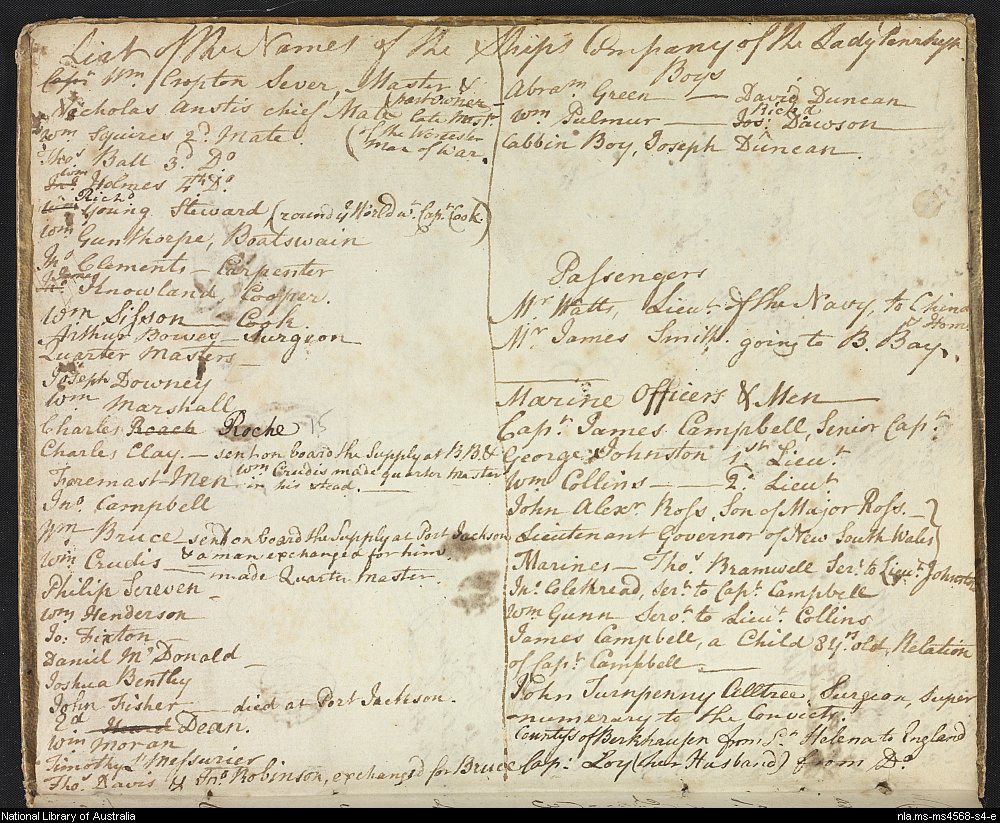 List of the Names of the Ship's Company of the Lady Penrhyn
Capt. Wm. Cropton Sever, Master &
part owner
Nicholas Anstis chief Mate (late Mastr.
Wm Squires 2d. Mate. of the Worcester
Man of War.
Thos. Ball 3d. Do
Wm
Jno. Holmes 4th Do.
Richd
Wm Young Steward (round ye World wt. Capt. Cook.)
Wm Gunthorpe, Boatswain
Jno Clements - Carpenter
James
Jno. Knowland Cooper.
Wm Sisson - Cook.
Arthur Bowes - Surgeon
Quarter Masters -
Joseph Downey
Wm Marshall
Charles Roach Roche
Charles Clay - sent on board the Supply at B.B. &
Wm Creudis made quarter Master
Foremast Men in his stead.
Jno. Campbell
Wm Bruce - send on board the Supply at Port Jackson
& a man exchanged for him
Wm Creudis - made Quarter Master.
Philip Screven -
Wm Henderson
Jo: Fixton
Daniel McDonald -
Joshua Bentley
John Fisher - died at Port Jackson.
Ed Dean.
Wm Moran
Timothy Messurier
Thos. Davis & Jno Robinson, exchanged for Bruce
Boys
Abram Green - David Duncan
Richd
Wm Pulmur - Jos. Dawson
Cabbin Boy, Joseph Duncan
Passengers
Mr. Watts, Lieut. of the Navy, to China
& Home
Mr James Smith going to B. Bay.
Marine Officers & Men
Capt. James Campbell, Senior Capt.
George Johnston 1st Lieut
Wm Collins - 2d Lieut
John Alexr Ross, Son of Major Ross -
Lieutenant Governor of New South Wales
Marines - Thos. Bramwell Sert. to Lieut. Johnston
Jno. Colethread, sert. to Capt. Campbell
Wm Gunn Servt. to Lieut. Collins
James Campbell, a Child 8 Yrs. old, Relation
of Capt. Campbell -
John Turnpenny Alltree, Surgeon, super
numerary to the Convicts.
Countys of Berkhausen from St. Helena to England
Capt. Loy (her Husband) from Do.
National Library of Australia
nla.ms-ms4568-s4-e